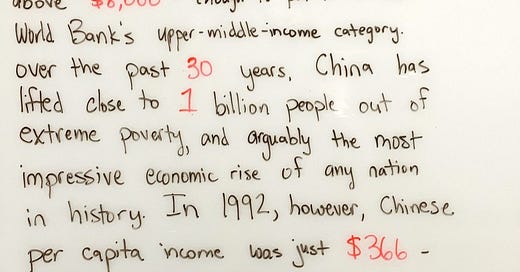 above $8,000 though to p
World Bank's upper-middle-income category.
over the past 30 years, China has
lifted close to 1 billion people out of
extreme poverty, and arguably the most
impressive economic rise of any nation
in history. In 1992, however, Chinese
per capita income was just $366 -